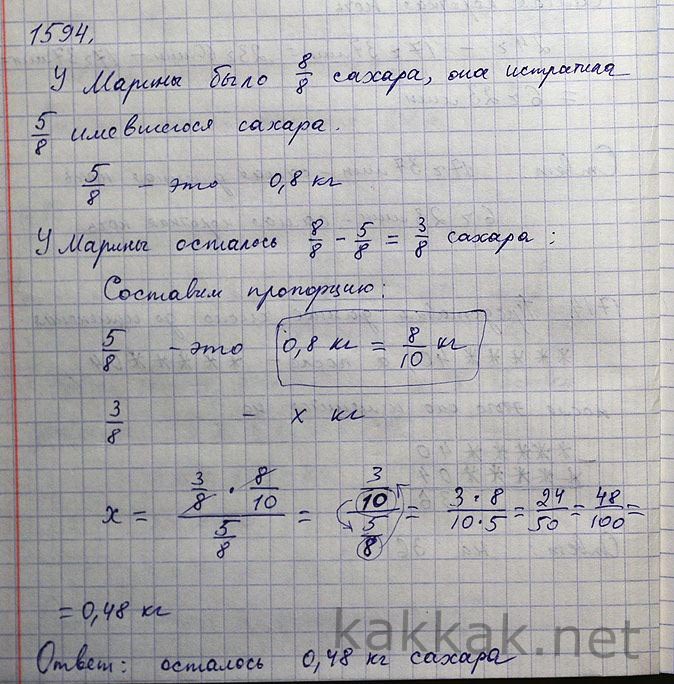 1594.
У Марины было 8/8 сахара, она истратила
5/8 имевшегося сахара.
5/8 – это 0,8 кг
У Марины осталось 8/8 - 5/8 = 3/8 сахара:
Составим пропорцию:
5/8 – это 0,8 кг = 8/10 кг
3/8 – x кг
x = (3/8 · 8/10)/(5/8) = (3/10)/(5/8) = (3·8)/(10·5) = 24/50 = 48/100 =
= 0,48 кг
kakkak.net
Ответ: осталось 0,48 кг сахара